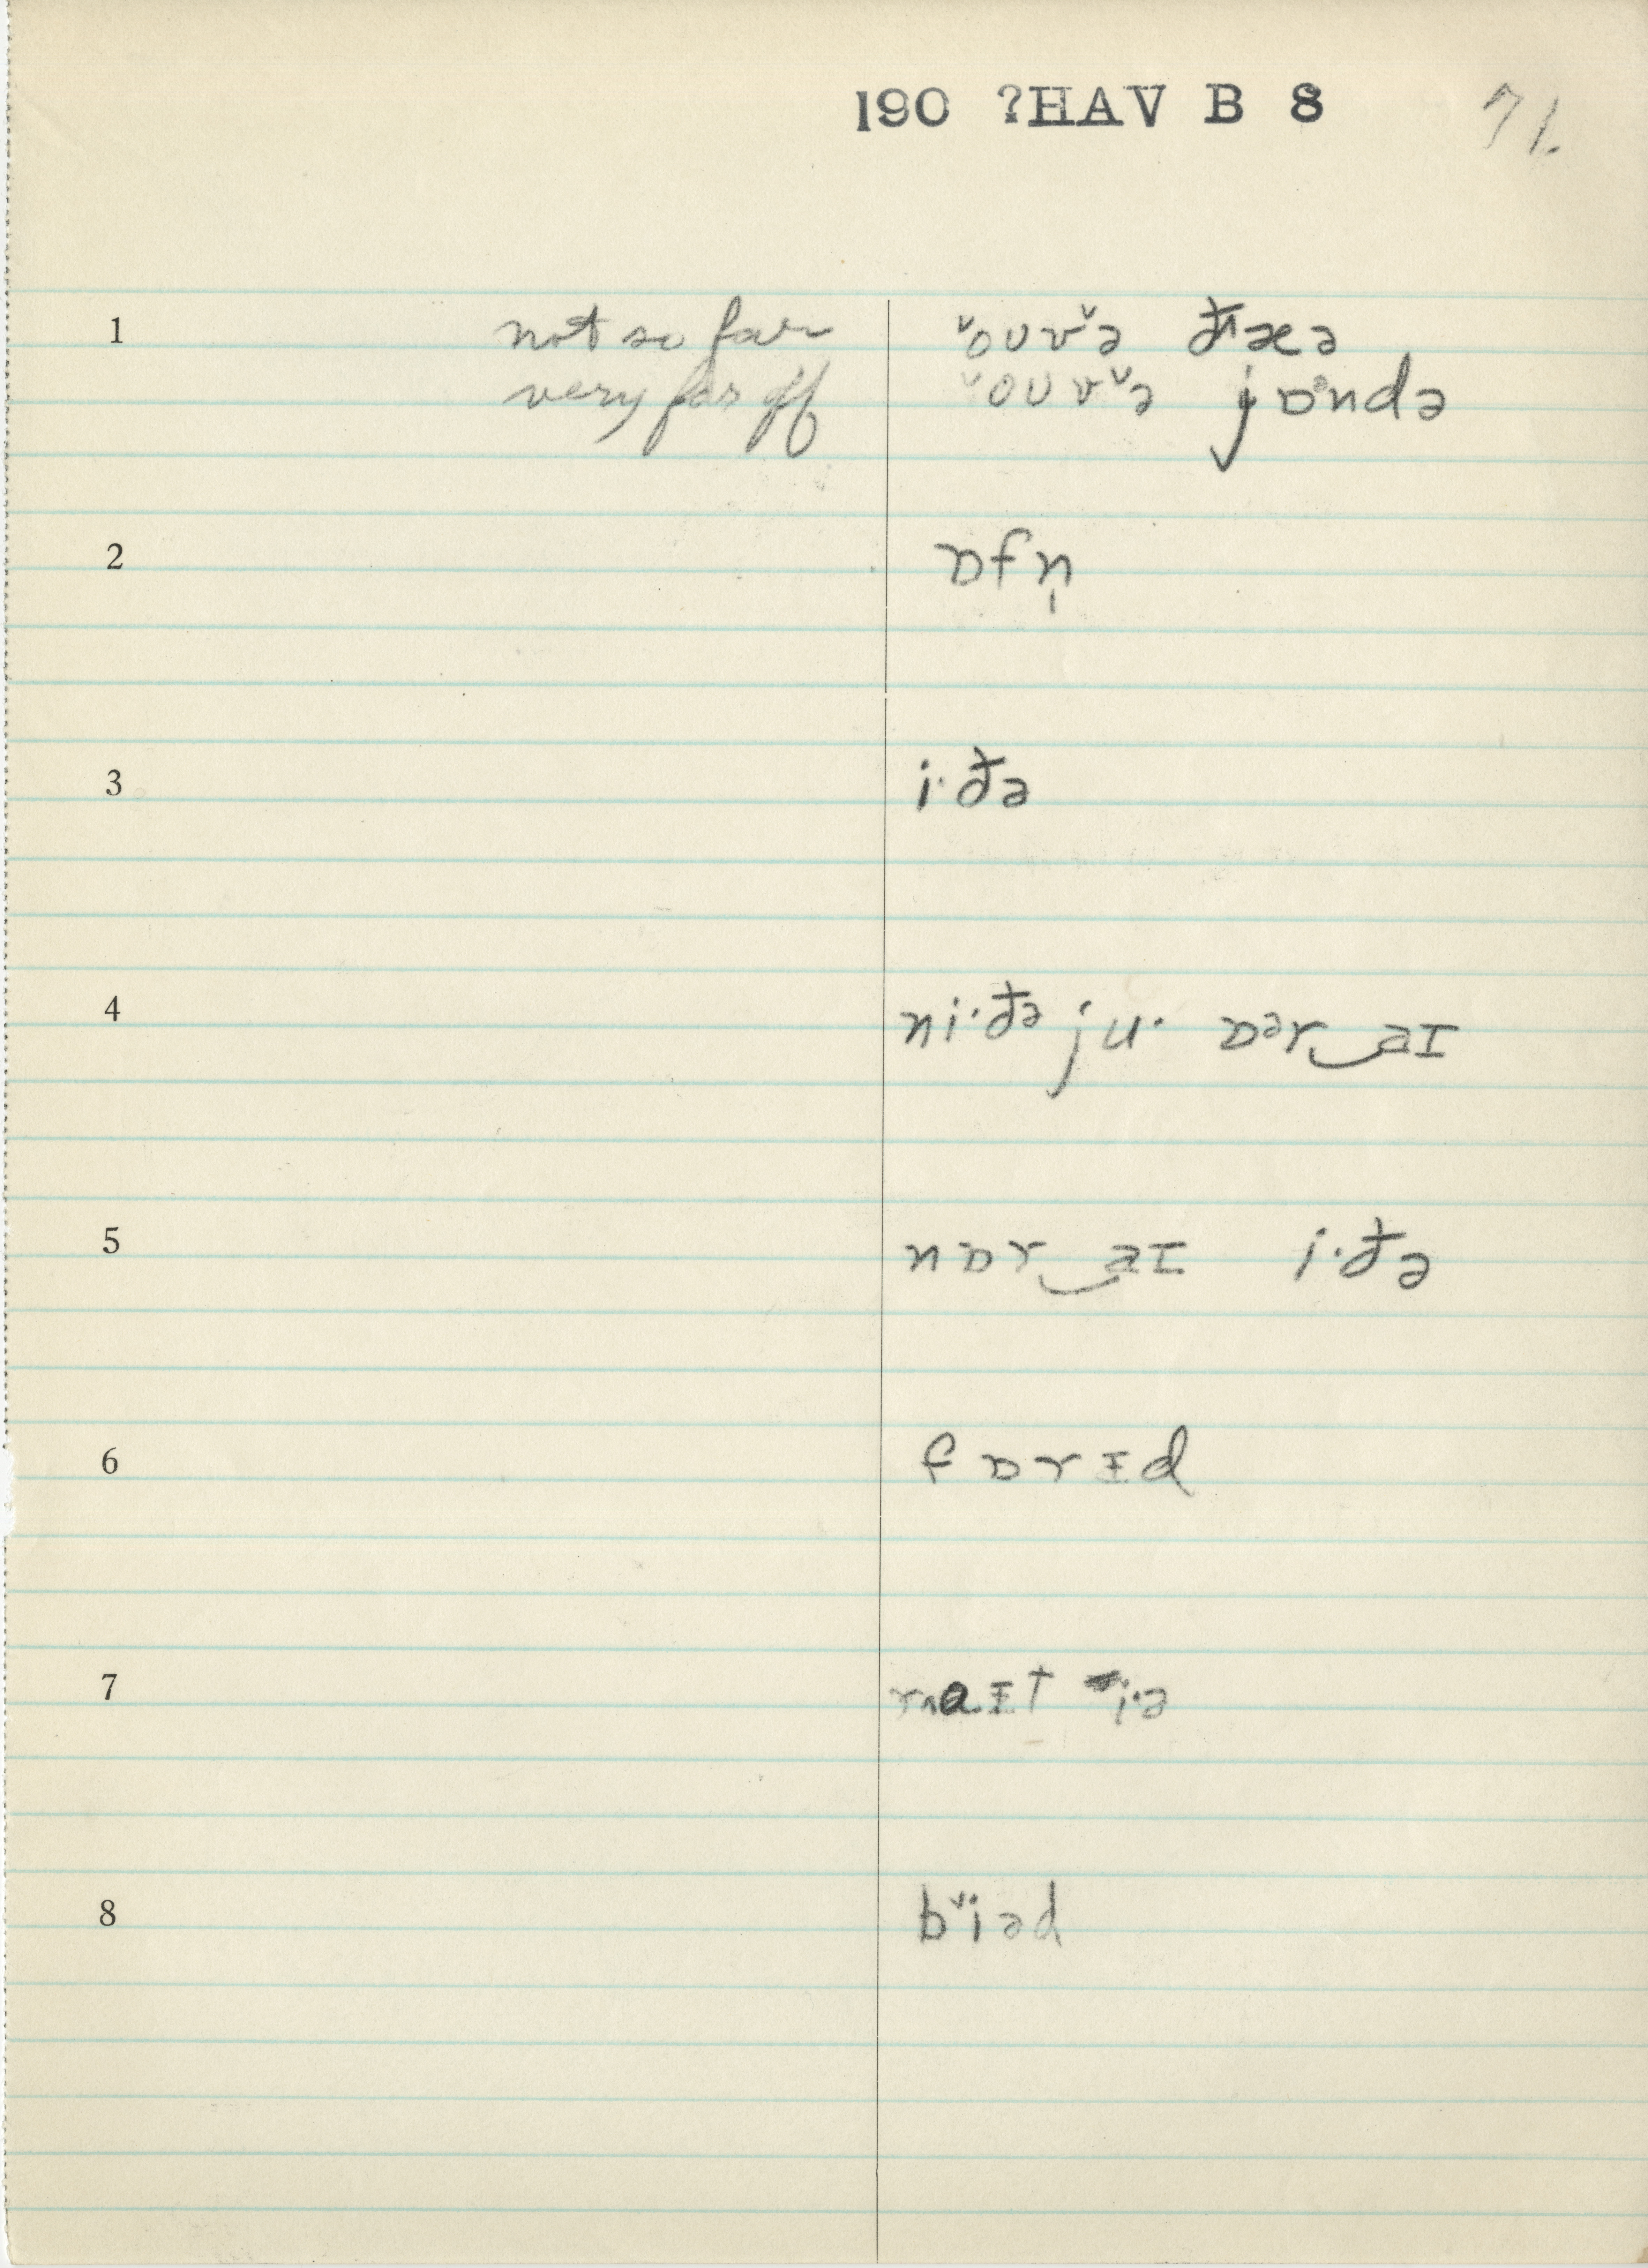 190 ?HAV B 8 71.
1 not so far ˅oʊv˅ə ðæə
very far off ˅oʊv˅ə jɒᵊndə
2 ɒfn̩
3 i·ðə
4 ni·ðə ju· ɒᵊr‿aɪ
5 nɒr‿aɪ i·ðə
6 fɒrɪd
7 raɪt i·ə
8 b˅iəd